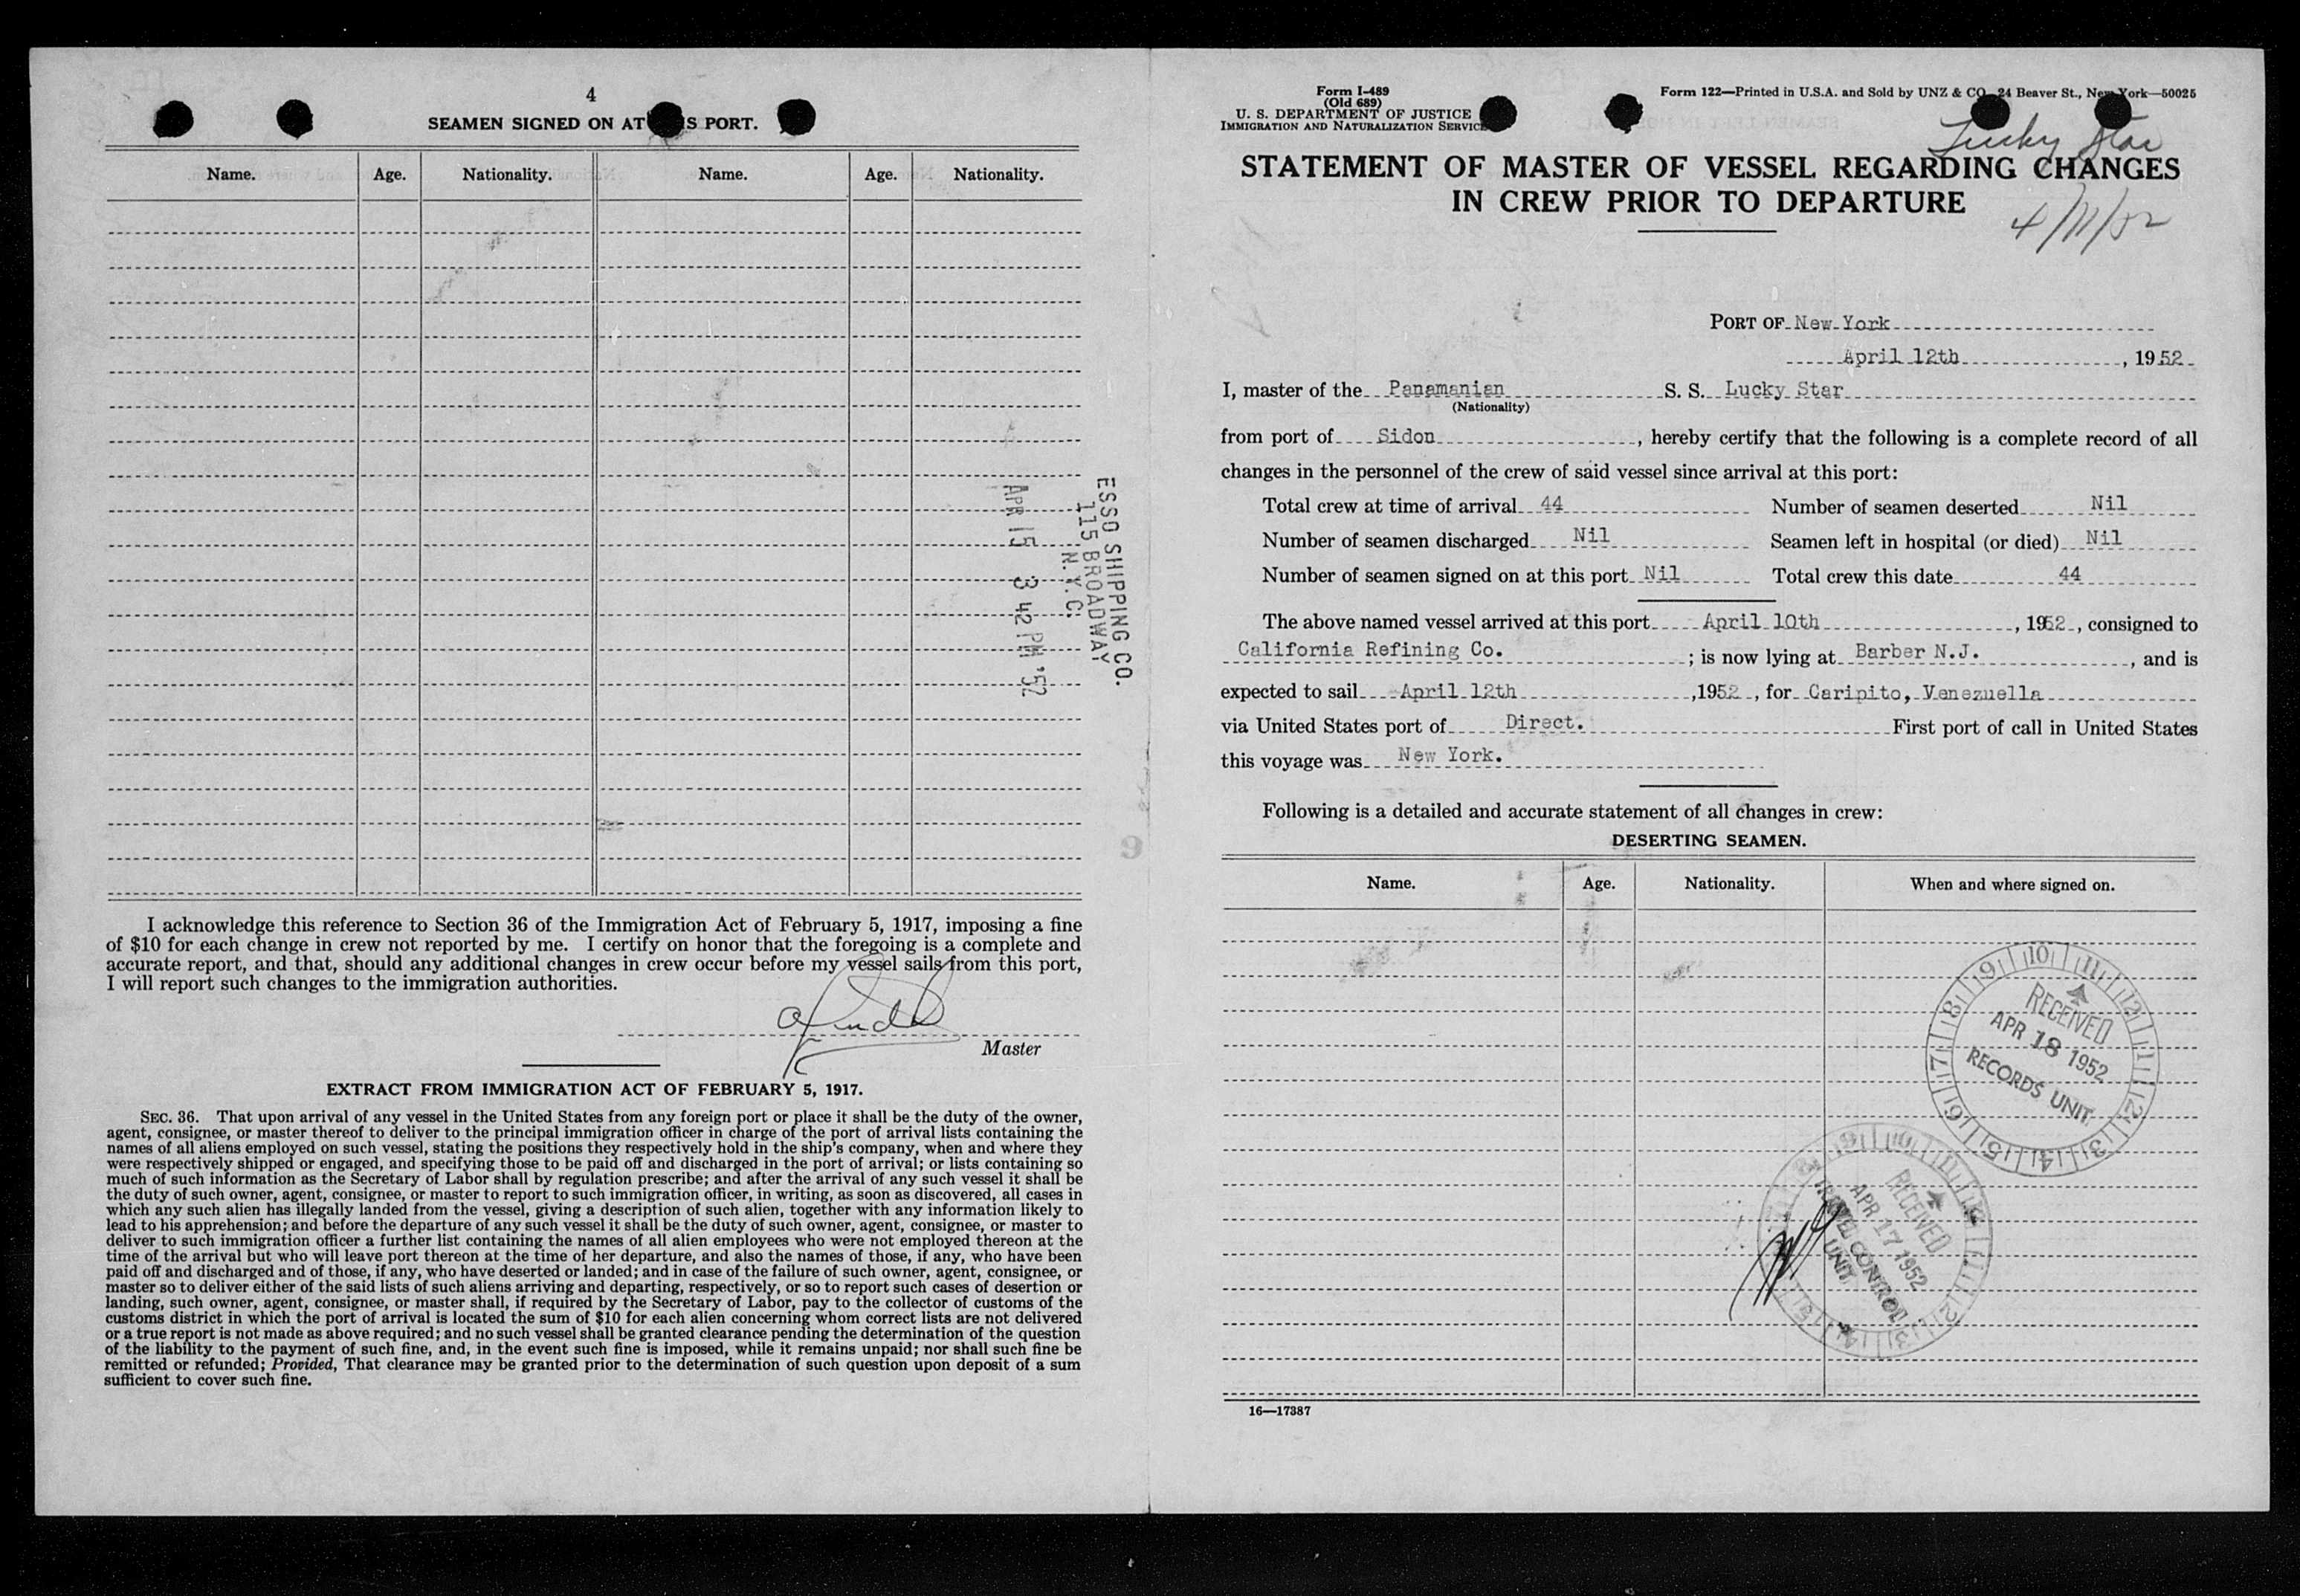 4
SEAMEN SIGNED ON AT S PORT.
Name. Age. Nationality. Name. Age. Nationality.
ESSO SHIPPING CO.
115 BROADWAY
N.Y.C.
APR 15 3 42 PM '52
I acknowledge this reference to Section 36 of the Immigration Act of February 5, 1917, imposing a fine
of $10 for each change in crew not reported by me. I certify on honor that the foregoing is a complete and
accurate report, and that, should any additional changes in crew occur before my vessel sails from this port,
I will report such changes to the immigration authorities.
Master
EXTRACT FROM IMMIGRATION ACT OF FEBRUARY 5, 1917.
SEC. 36. That upon arrival of any vessel in the United States from any foreign port or place it shall be the duty of the owner,
agent, consignee, or master thereof to deliver to the principal immigration officer in charge of the port of arrival lists containing the
names of all aliens employed on such vessel, stating the positions they respectively hold in the ship's company, when and where they
were respectively shipped or engaged, and specifying those to be paid off and discharged in the port of arrival; or lists containing so
much of such information as the Secretary of Labor shall by regulation prescribe; and after the arrival of any such vessel it shall be
the duty of such owner, agent, consignee, or master to report to such immigration officer, in writing, as soon as discovered, all cases in
which any such alien has illegally landed from the vessel, giving a description of such alien, together with any information likely to
lead to his apprehension; and before the departure of any such vessel it shall be the duty of such owner, agent, consignee, or master to
deliver to such immigration officer a further list containing the names of all alien employees who were not employed thereon at the
time of the arrival but who will leave port thereon at the time of her departure, and also the names of those, if any, who have been
paid off and discharged and of those, if any, who have deserted or landed; and in case of the failure of such owner, agent, consignee, or
master so to deliver either of the said lists of such aliens arriving and departing, respectively, or so to report such cases of desertion or
landing, such owner, agent, consignee, or master shall, if required by the Secretary of Labor, pay to the collector of customs of the
customs district in which the port of arrival is located the sum of $10 for each alien concerning whom correct lists are not delivered
or a true report is not made as above required; and no such vessel shall be granted clearance pending the determination of the question
of the liability to the payment of such fine, and, in the event such fine is imposed, while it remains unpaid; nor shall such fine be
remitted or refunded; Provided, That clearance may be granted prior to the determination of such question upon deposit of a sum
sufficient to cover such fine.
Form I-489
(Old 689)
U. S. DEPARTMENT OF JUSTICE
IMMIGRATION AND NATURALIZATION SERVICE
Form 122—Printed in U.S.A. and Sold by UNZ & CO 24 Beaver St., New York—50025
Lucky Star
STATEMENT OF MASTER OF VESSEL REGARDING CHANGES
IN CREW PRIOR TO DEPARTURE
PORT OF New York
April 12th, 1952
I, master of the Panamanian S. S. Lucky Star
(Nationality)
from port of Sidon, hereby certify that the following is a complete record of all
changes in the personnel of the crew of said vessel since arrival at this port:
Total crew at time of arrival 44 Number of seamen deserted Nil
Number of seamen discharged Nil Seamen left in hospital (or died) Nil
Number of seamen signed on at this port Nil Total crew this date 44
The above named vessel arrived at this port April 10th, 1952, consigned to
California Refining Co.; is now lying at Barber N.J., and is
expected to sail April 12th, 1952, for Caripito, Venezuella
via United States port of Direct. First port of call in United States
this voyage was New York.
Following is a detailed and accurate statement of all changes in crew:
DESERTING SEAMEN.
Name. Age. Nationality. When and where signed on.
9 10 11 12 1 2 3 4 5 6 7 8
RECEIVED
APR 18 1952
RECORDS UNIT
RECEIVED
APR 17 1952
TRAVEL CONTROL
UNIT
16—17387